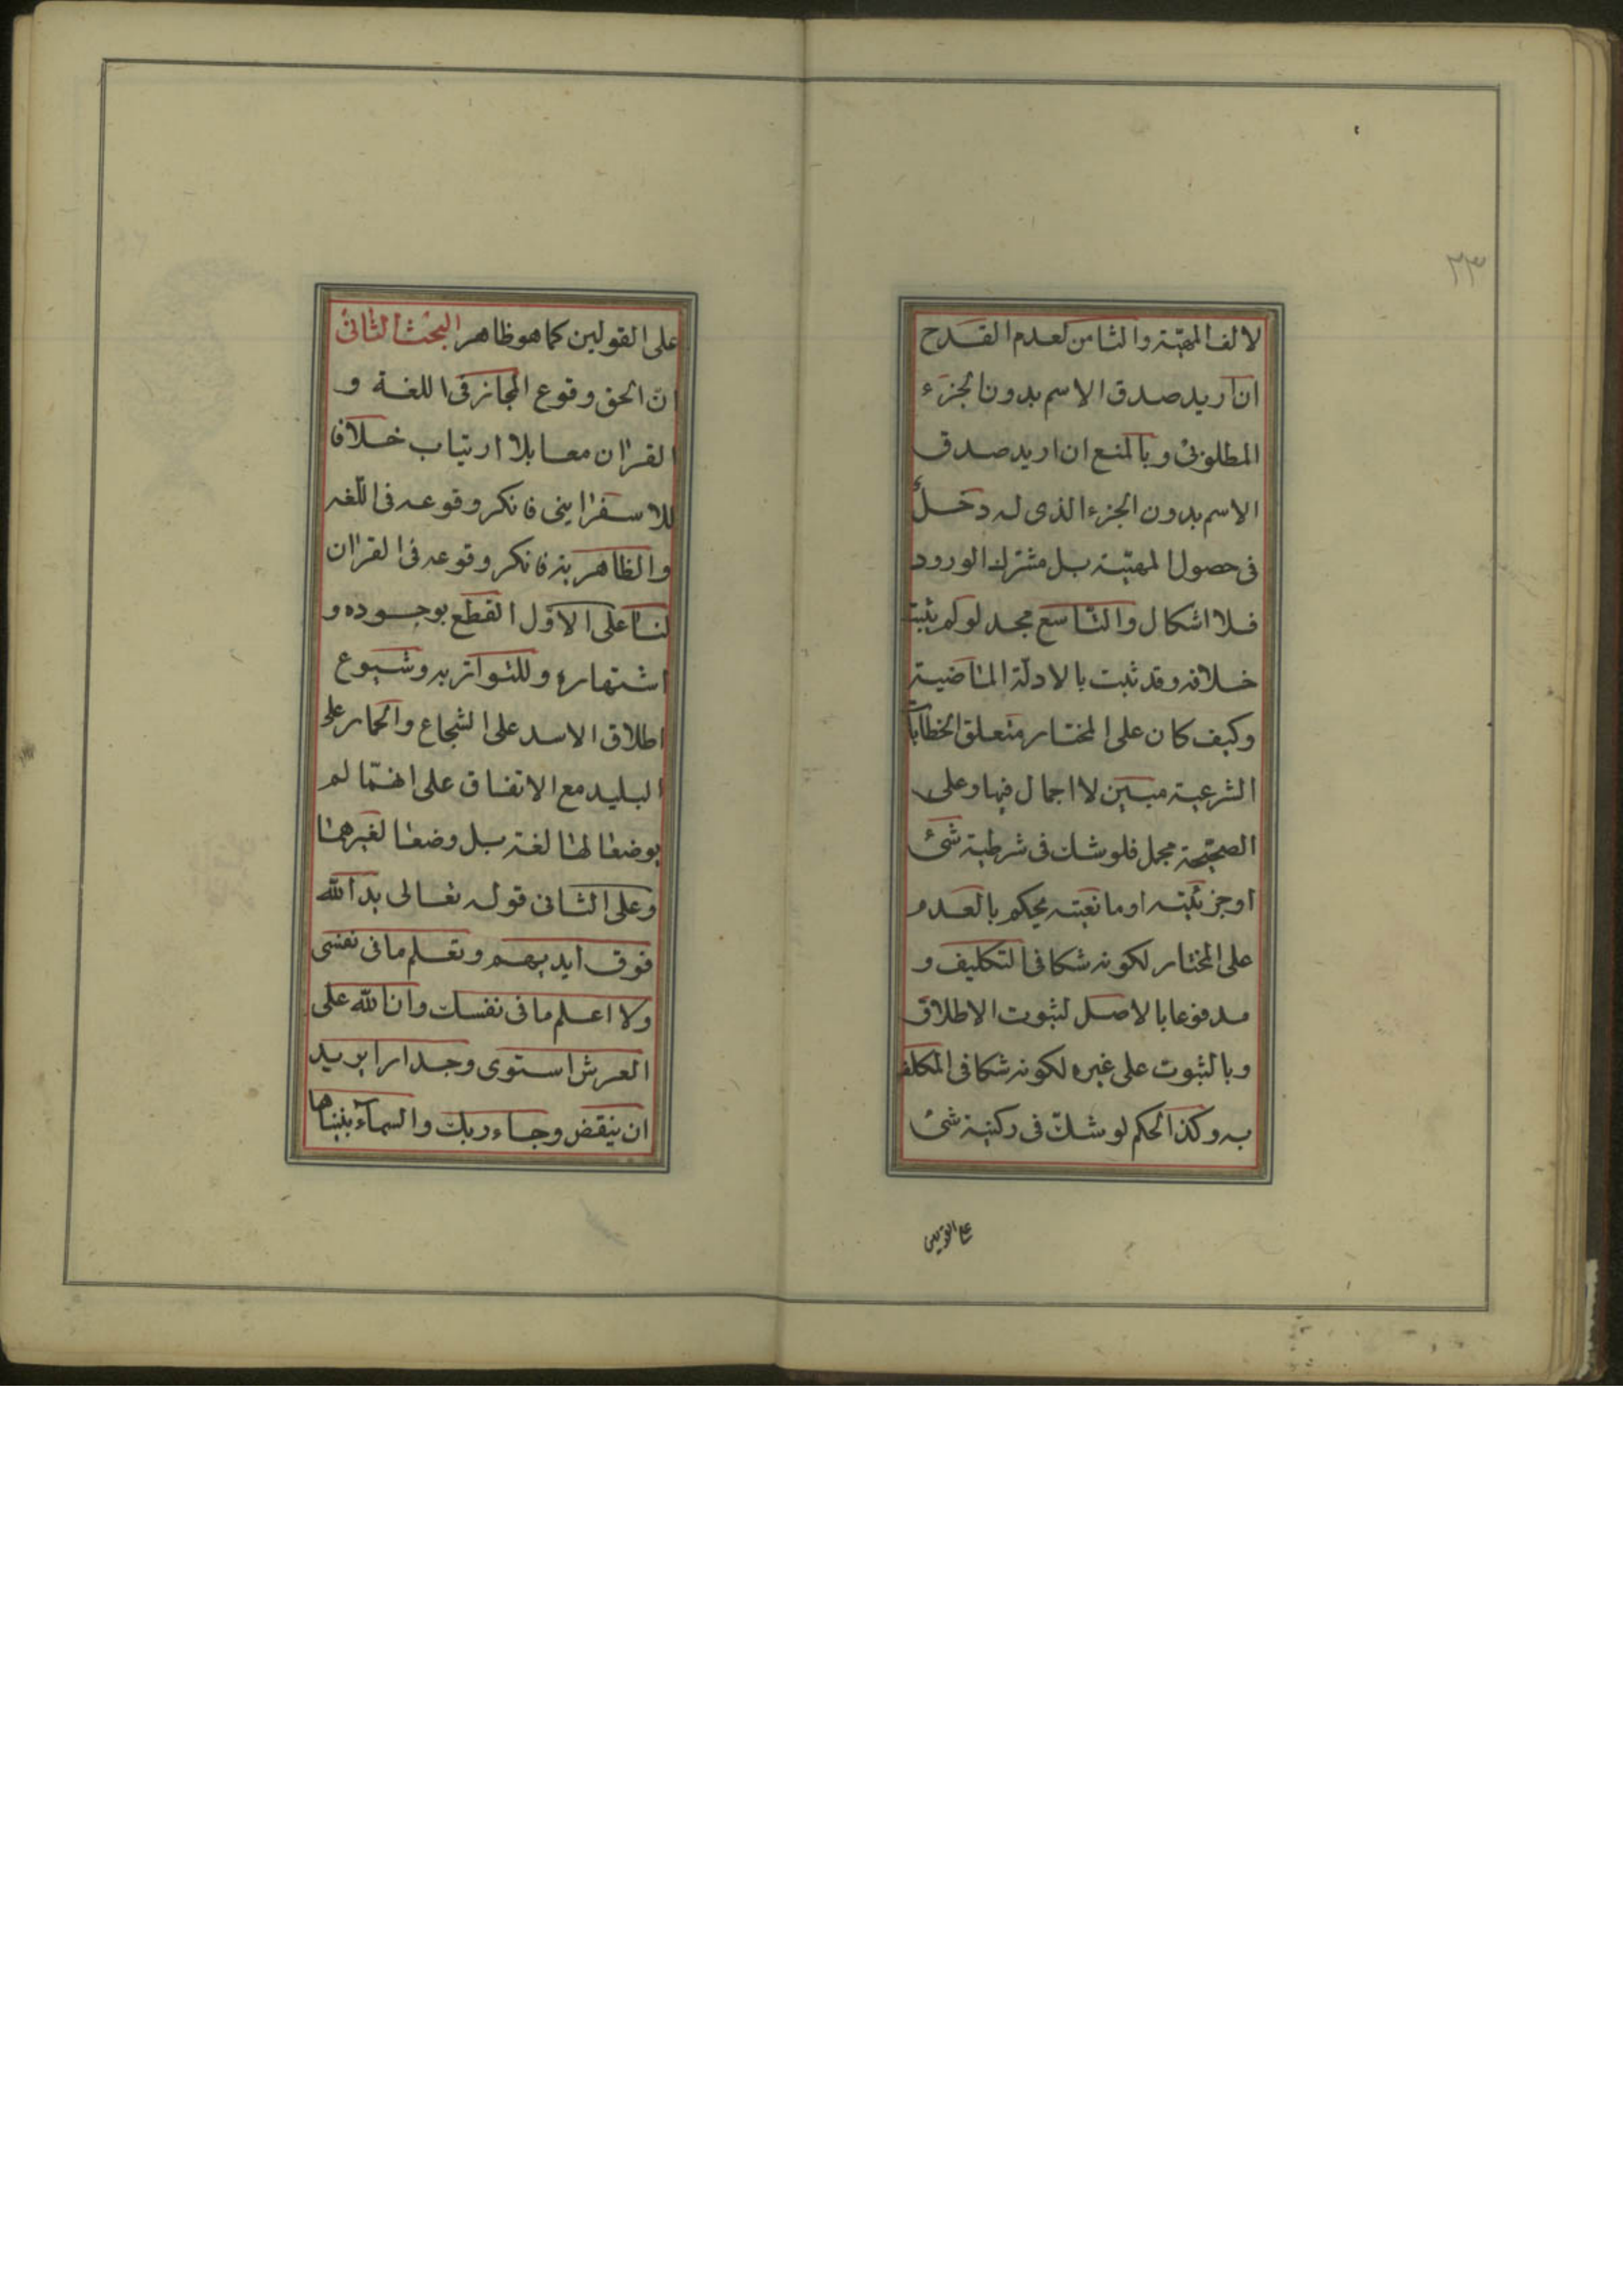 ٢٣
لا لف المهيّة والثامن لعدم القدح
ان اريد صدق الاسم بدون الجزء
المطلوبى وبالمنع ان اريد صدق
الاسم بدون الجزء الذى له دخل
فى حصول المهيّة بل مشترك الورود
فلا اشكال والتاسع مجد لو لم يثبت
خلافه وقد ثبت بالادلّة الماضية
وكيف كان على المختار متعلق الخطابا
الشرعية مبين لا اجمال فيها وعلى
الصحيحة مجمل فلو شك فى شرطية شئ
او جزئيته او مانعيته يحكم بالعدم
على المختار لكونه شكا فى التكليف و
مدفوعا بالاصل لثبوت الاطلاق
وبالثبوت على غيره لكونه شكا فى المكلف
به وكذا الحكم لو شك فى ركنية شئ
على القولين
على القولين كما هو ظاهر البحث الثانى
ان الحق وقوع المجاز فى اللغة و
القران معا بلا ارتياب خلافا
للاسفراينى فانكر وقوعه فى اللّغه
والظاهرية فانكر وقوعه فى القران
لنا على الاوّل القطع بوجوده و
اشتهاره وللتواتر به وشيوع
اطلاق الاسد على الشجاع والحمار على
البليد مع الاتفاق على انهما لم
يوضعا لهما لغة بل وضعا لغيرهما
وعلى الثانى قوله تعالى يد الله
فوق ايديهم وتعلم ما فى نفسى
ولا اعلم ما فى نفسك وان الله على
العرش استوى وجدارا يريد
ان ينقض وجاء ربك والسماء بنيناها